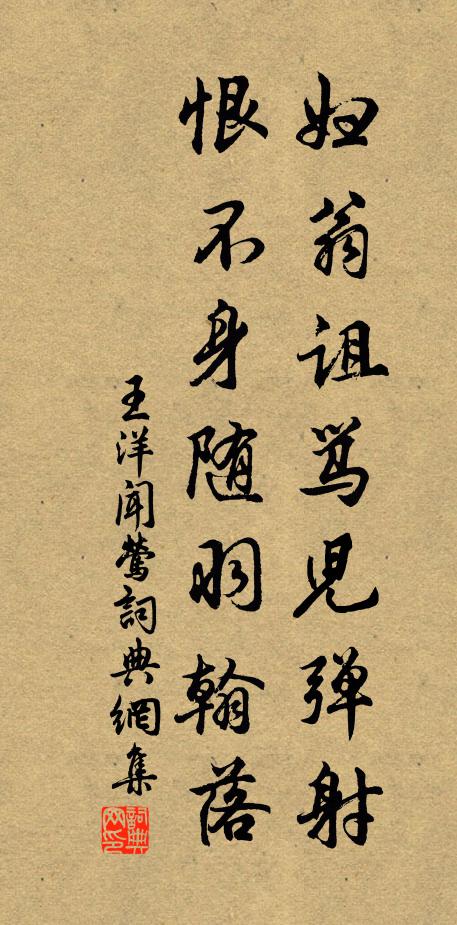 妇翁诅骂儿弹射
恨不身随羽翰落
王洋闻莺词典网集
詞典网印